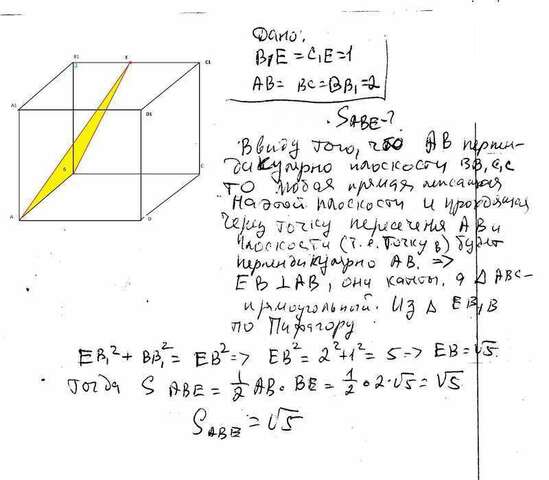 B1 E C1
A1 D1
B C
A D
Дано:
B₁E = C₁E = 1
AB = BC = BB₁ = 2
S ABE - ?
Ввиду того, что AB перпен-
дикулярно плоскости BB₁C₁C
то любая прямая лежащая
на этой плоскости и проходящая
через точку пересечения AB и
плоскости (т.е. точку B) будет
перпендикулярно AB. =>
EB ⊥ AB, они катеты, а △ ABC-
прямоугольный. Из △ EB₁B
по Пифагору
EB₁² + BB₁² = EB² => EB² = 2² + 1² = 5 => EB = √5.
Тогда S ABE = 1/2 AB • BE = 1/2 • 2 • √5 = √5
S ABE = √5